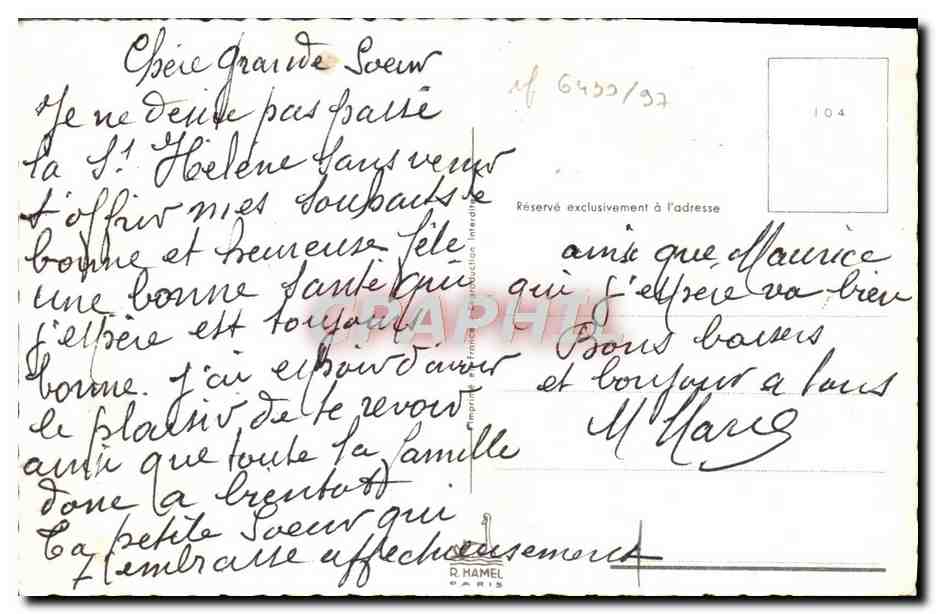 Chère Grande Soeur
Je ne désire pas passé
la St Hélène sans venir
t'offrir mes souhaits de
bonne et heureuse fête
une bonne santé qui
j'espère est toujours
bonne. j'ai espoir d'avoir
le plaisir de te revoir
ainsi que toute la famille
donc a bientott
Ta petite Soeur qui
t'embrasse affectueusement
ainsi que Maurice
qui j'espère va bien
Bons baisers
et bonjour a tous
M Marie
ref 6499/97
104
Réservé exclusivement à l'adresse
Imprimé en France - Reproduction Interdite
CPAPHIL
R. HAMEL
PARIS